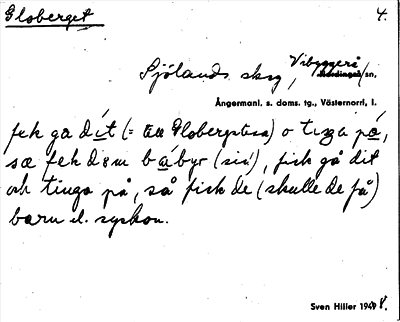 Globerget 4.
Sjölands skog, Vibyggerå sn.
Ångermanl. s. doms. tg., Västernorrl. l.
fek ga dit (= till Globergstjärn) o tinga på,
sæ fek dem bàbyr (sii), fick gå dit
och tinga på, så fick de (skulle de få)
barn el. syskon.
Sven Hiller 1948.